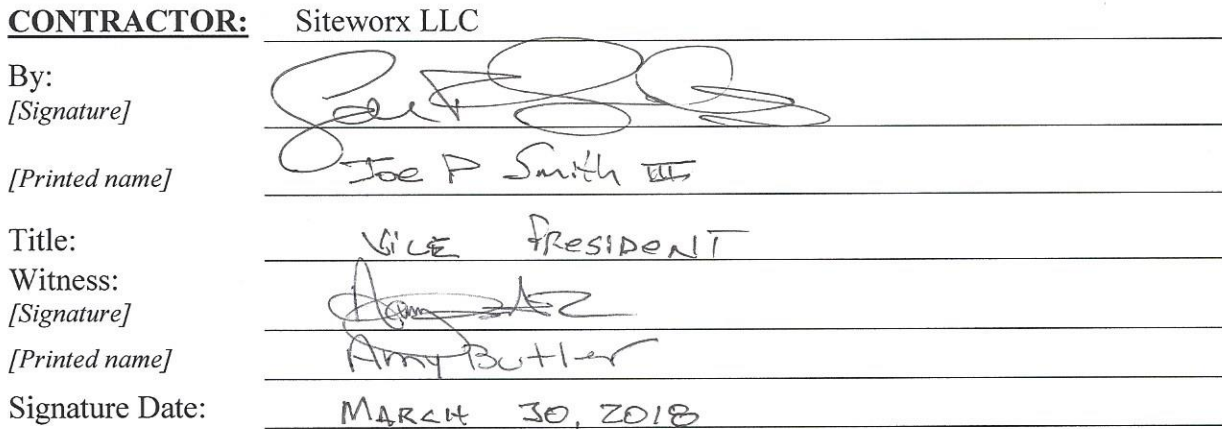 CONTRACTOR: Siteworx LLC
By:
[Signature]
[Printed name] Joe P Smith III
Title: Vice President
Witness:
[Signature]
[Printed name] Amy Butler
Signature Date: MARCH 30, 2018